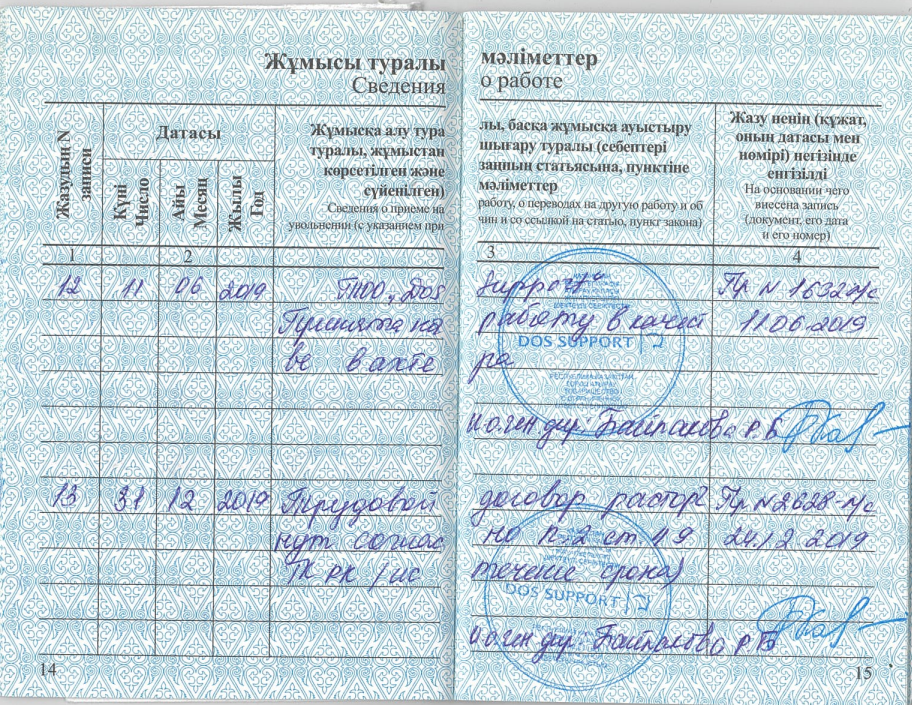 Жұмысы туралы мәліметтер
Сведения о работе
Жазудың N
записи
Датасы
Күні
Число
Айы
Месяц
Жылы
Год
Жұмысқа алу тура лы, басқа жұмысқа ауыстыру
туралы, жұмыстан шығару туралы (себептері
көрсетілген және заңның статьясына, пунктіне
сүйенілген) мәліметтер
Сведения о приеме на работу, о переводах на другую работу и об
увольнении (с указанием при чин и со ссылкой на статью, пункт закона)
Жазу ненің (құжат,
оның датасы мен
нөмірі) негізінде
енгізілді
На основании чего
внесена запись
(документ, его дата
и его номер)
1 2 3 4
12 11 06 2019 ТОО „Dos Support“ Пр N 1632-л/с
Принята на работу в качест 11.06.2019
ве вахте ра
DOS SUPPORT
И.о.ген.дир: Байпакова Р.Б
13 31 12 2019 Трудовой договор расторг Пр N 2628-л/с
нут соглас но п.2 ст 49 24.12 2019
ТК РК (ис течение срока)
DOS SUPPORT
И.о.ген.дир: Байпакова Р.Б
14 15